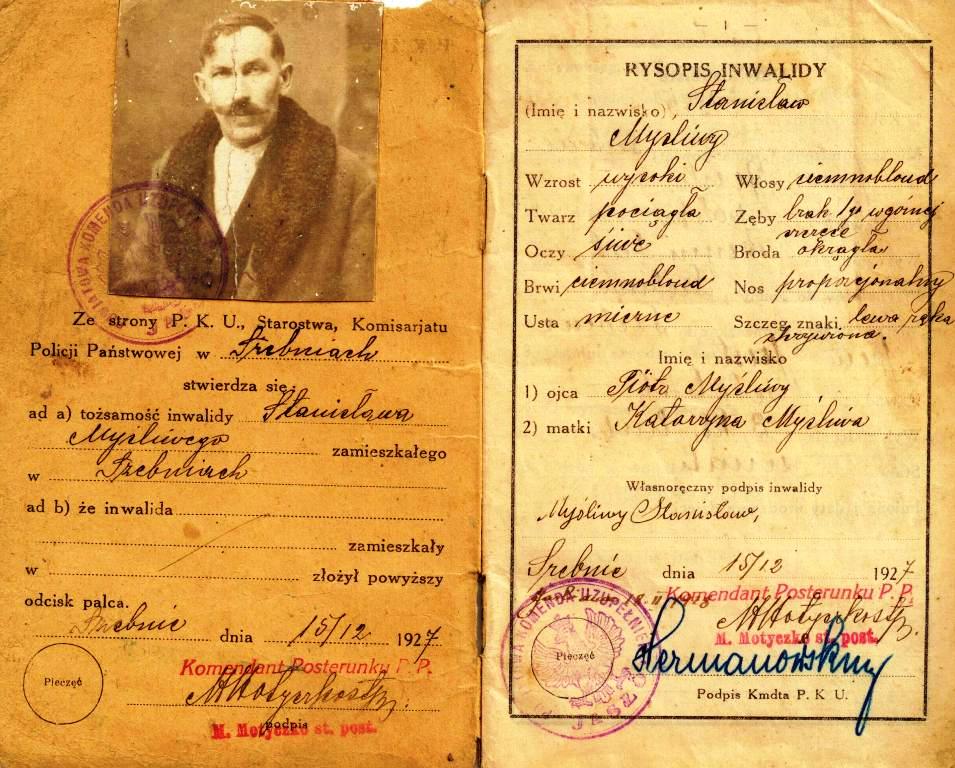 Ze strony P. K. U., Starostwa, Komisarjatu
Policji Państwowej w Szebniach
stwierdza się:
ad a) tożsamość inwalidy Stanisława
Myśliwego zamieszkałego
w Szebniach
ad b) że inwalida
zamieszkały
w złożył powyższy
odcisk palca.
Szebnie dnia 15/12 1927
Pieczęć
Komendant Posterunku P. P.
podpis
M. Motyczko st. post.
– 1 –
RYSOPIS INWALIDY
(Imię i nazwisko) Stanisław
Myśliwy
Wzrost wysoki Włosy ciemnoblond
Twarz pociągła Zęby brak 1go w górnej
szczęce
Oczy siwe Broda okrągła
Brwi ciemnoblond Nos proporcjonalny
Usta mierne Szczeg. znaki lewa ręka
skrzywiona.
Imię i nazwisko
1) ojca Piotr Myśliwy
2) matki Katarzyna Myśliwa
Własnoręczny podpis inwalidy
Myśliwy Stanisław,
Szebnie dnia 15/12 1927
KOMENDA UZUPEŁNIEŃ
Pieczęć
Komendant Posterunku P. P.
M. Motyczko st. post.
Podpis Kmdta P. K. U.